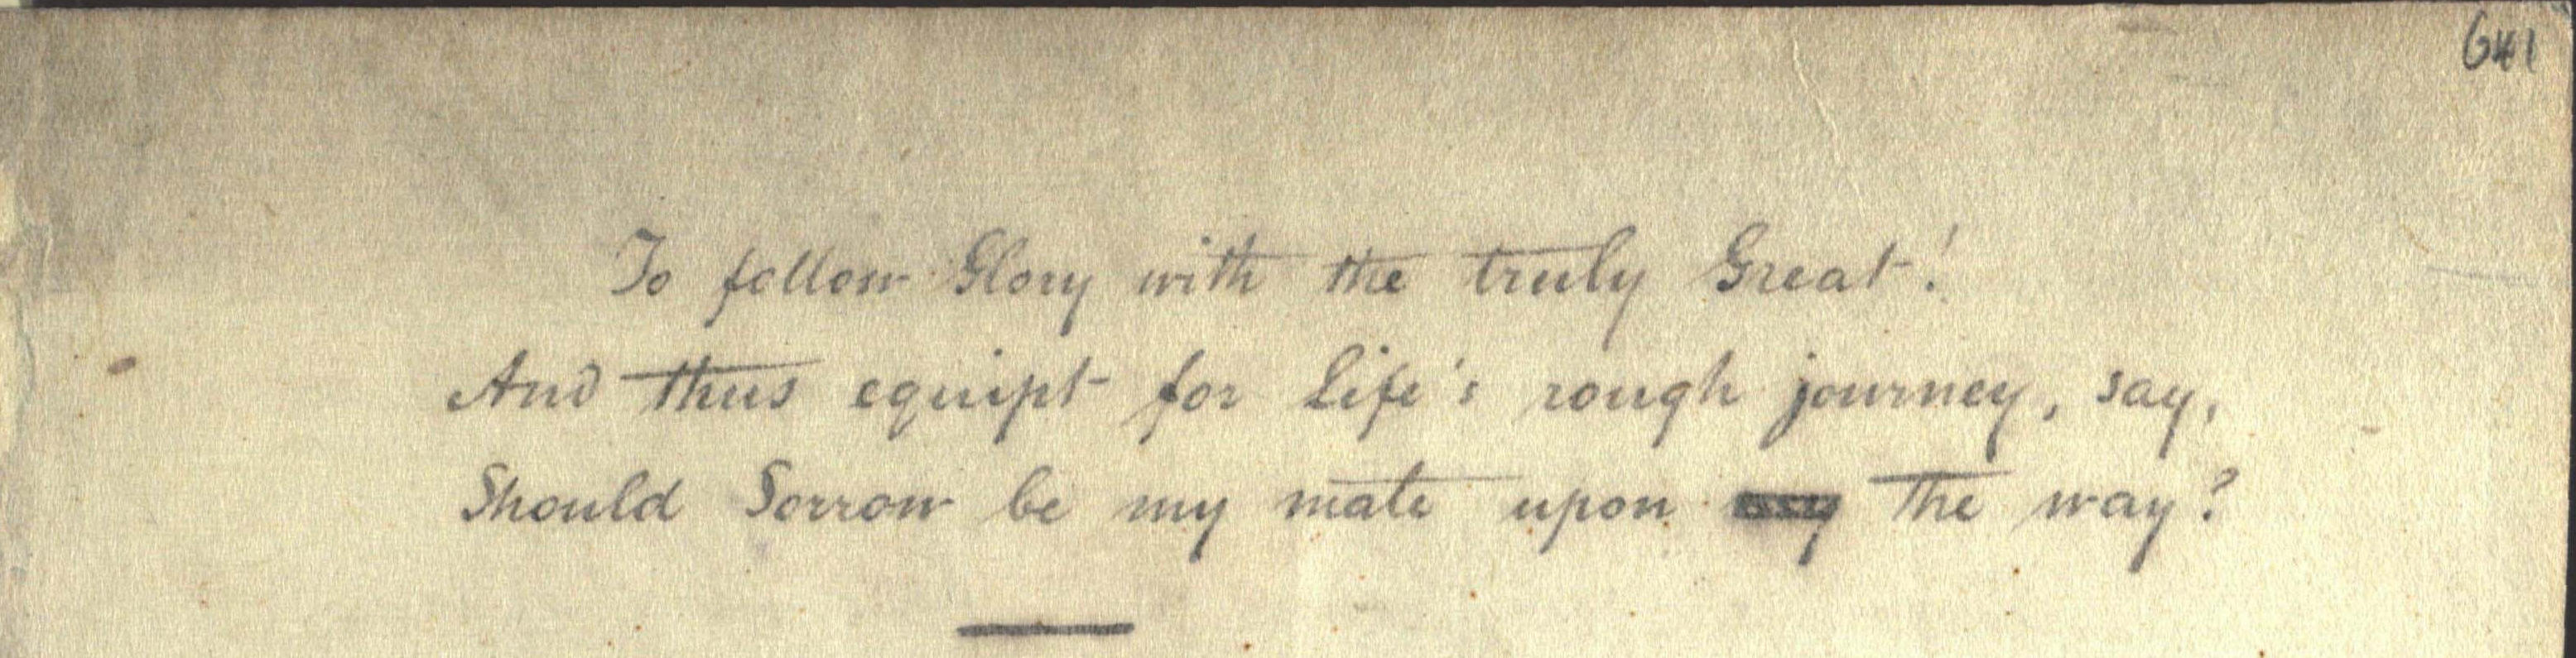 641
To follow Glory with the truly Great!
And thus equipt for Life's rough journey, say,
Should Sorrow be my mate upon the way?